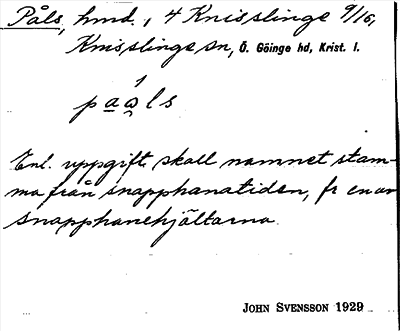 Påls, hmd., 4 Knisslinge 9/16,
Knisslinge sn, Ö. Göinge hd, Krist. l.
pa̲å̲ls
Enl. uppgift skall namnet stam-
ma från snapphanatiden, fr en av
snapphanehjältarna.
JOHN SVENSSON 1929